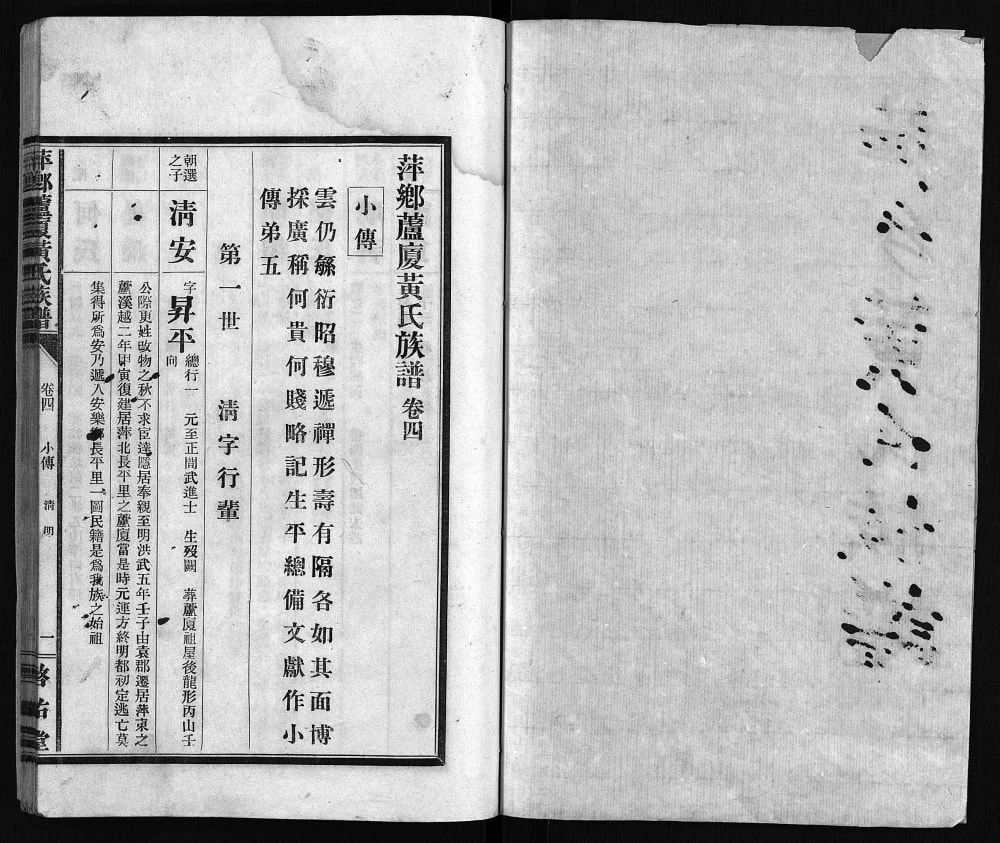 萍鄉蘆廈黃氏族譜 卷四
小傳
雲仍緜衍昭穆遞禪形壽有隔各如其面博
採廣稱何貴何賤略記生平總備文獻作小
傳弟五
第一世 清字行輩
朝選
之子
清安
字昇平 總行一 元至正間武進士 生歿闕 葬蘆廈祖屋後龍形丙山壬
向
公際更姓改物之秋不求宦達隱居奉親至明洪武五年壬子由袁郡遷居萍東之
蘆溪越二年甲寅復建居萍北長平里之蘆廈當是時元運方終明都初定逃亡莫
集得所為安乃遞入安樂鄉長平里一圖民籍是為我族之始祖
萍鄉蘆廈黃氏族譜 卷四 小傳 清 明 一 啓佑堂